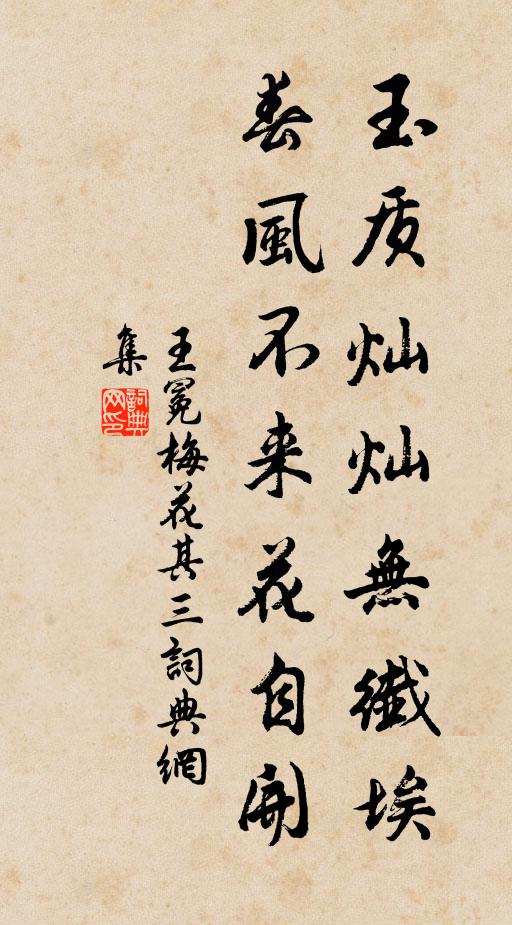 玉质灿灿無纖埃
春風不来花自開
王冕梅花其三詞典網
集
詞典網印